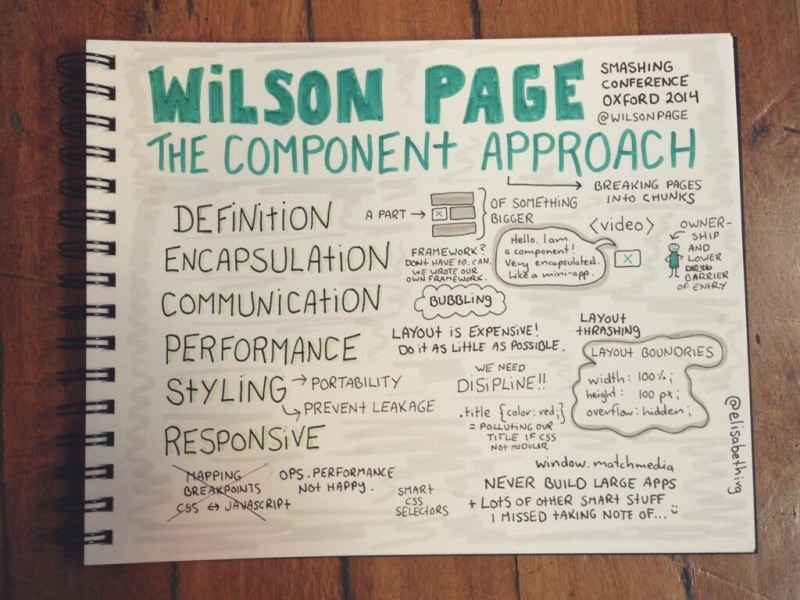 WILSON PAGE
SMASHING
CONFERENCE
OXFORD 2014
@WILSONPAGE
THE COMPONENT APPROACH
→ BREAKING PAGES
INTO CHUNKS
DEFINITION
A PART →
OF SOMETHING
BIGGER
<video>
OWNER-
SHIP
AND
LOWER
BARRIER
OF ENTRY
ENCAPSULATION
FRAMEWORK?
DON'T HAVE TO. CAN.
WE WROTE OUR
OWN FRAMEWORK.
Hello. I am
a component!
Very encapsulated.
Like a mini-app.
COMMUNICATION
BUBBLING
PERFORMANCE
LAYOUT IS EXPENSIVE!
DO IT AS LITTLE AS POSSIBLE.
LAYOUT
THRASHING
LAYOUT BOUNDRIES
width: 100%;
height: 100 px;
overflow: hidden;
STYLING → PORTABILITY
→ PREVENT LEAKAGE
WE NEED
DISIPLINE!!
.title {color: red;}
= POLLUTING OUR
TITLE IF CSS
NOT MODULAR
RESPONSIVE
MAPPING
BREAKPOINTS
CSS ↔ JAVASCRIPT
OPS. PERFORMANCE
NOT HAPPY.
SMART
CSS
SELECTORS
window.matchmedia
NEVER BUILD LARGE APPS
+ LOTS OF OTHER SMART STUFF
I MISSED TAKING NOTE OF...
@elisabethirg